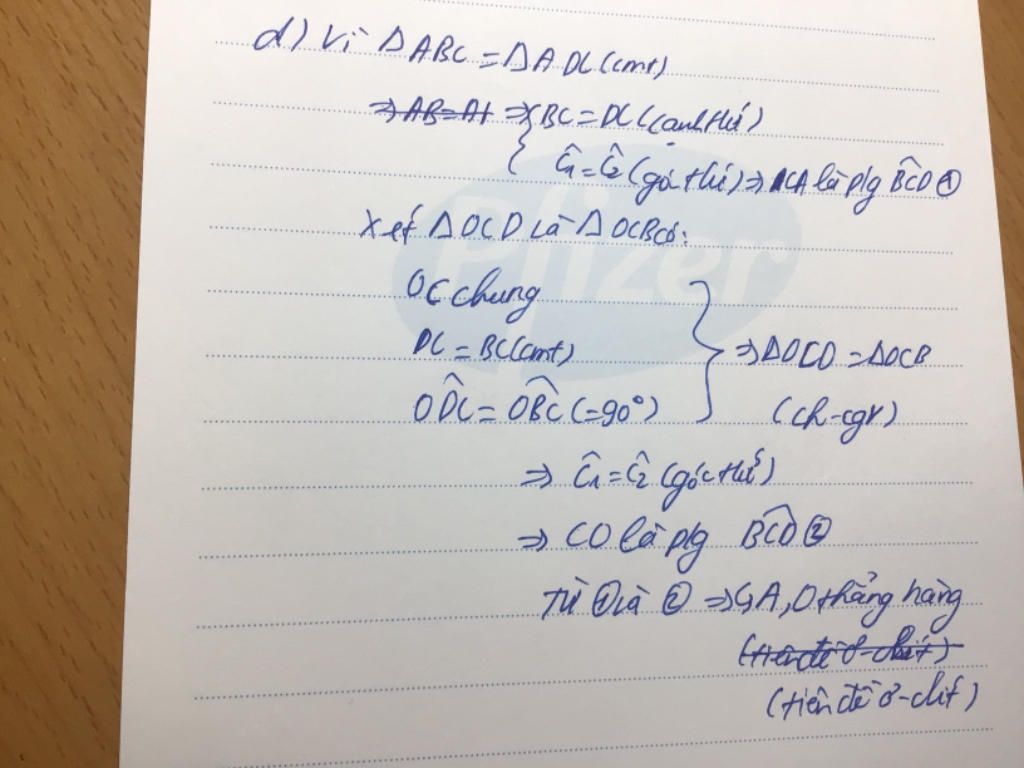 d) Vì Δ ABC = Δ ADC (cmt)
⇒ AB = A1 ⇒ { BC = DC (cạnh t/ứ)
Ĉ1 = Ĉ2 (góc t/ứ) ⇒ CA là p/g B̂CD ①
Xét Δ OCD và Δ OCB có:
OC chung
DC = BC (cmt)
ODC = OBC (= 90°)
⇒ ΔOCD = ΔOCB
(ch-cgv)
⇒ Ĉ1 = Ĉ2 (góc t/ứ)
⇒ CO là p/g BCD ②
Từ ① và ② ⇒ C, A, O thẳng hàng
(tiên đề ơ-clit)
(tiên đề ơ-clit)
Pfizer